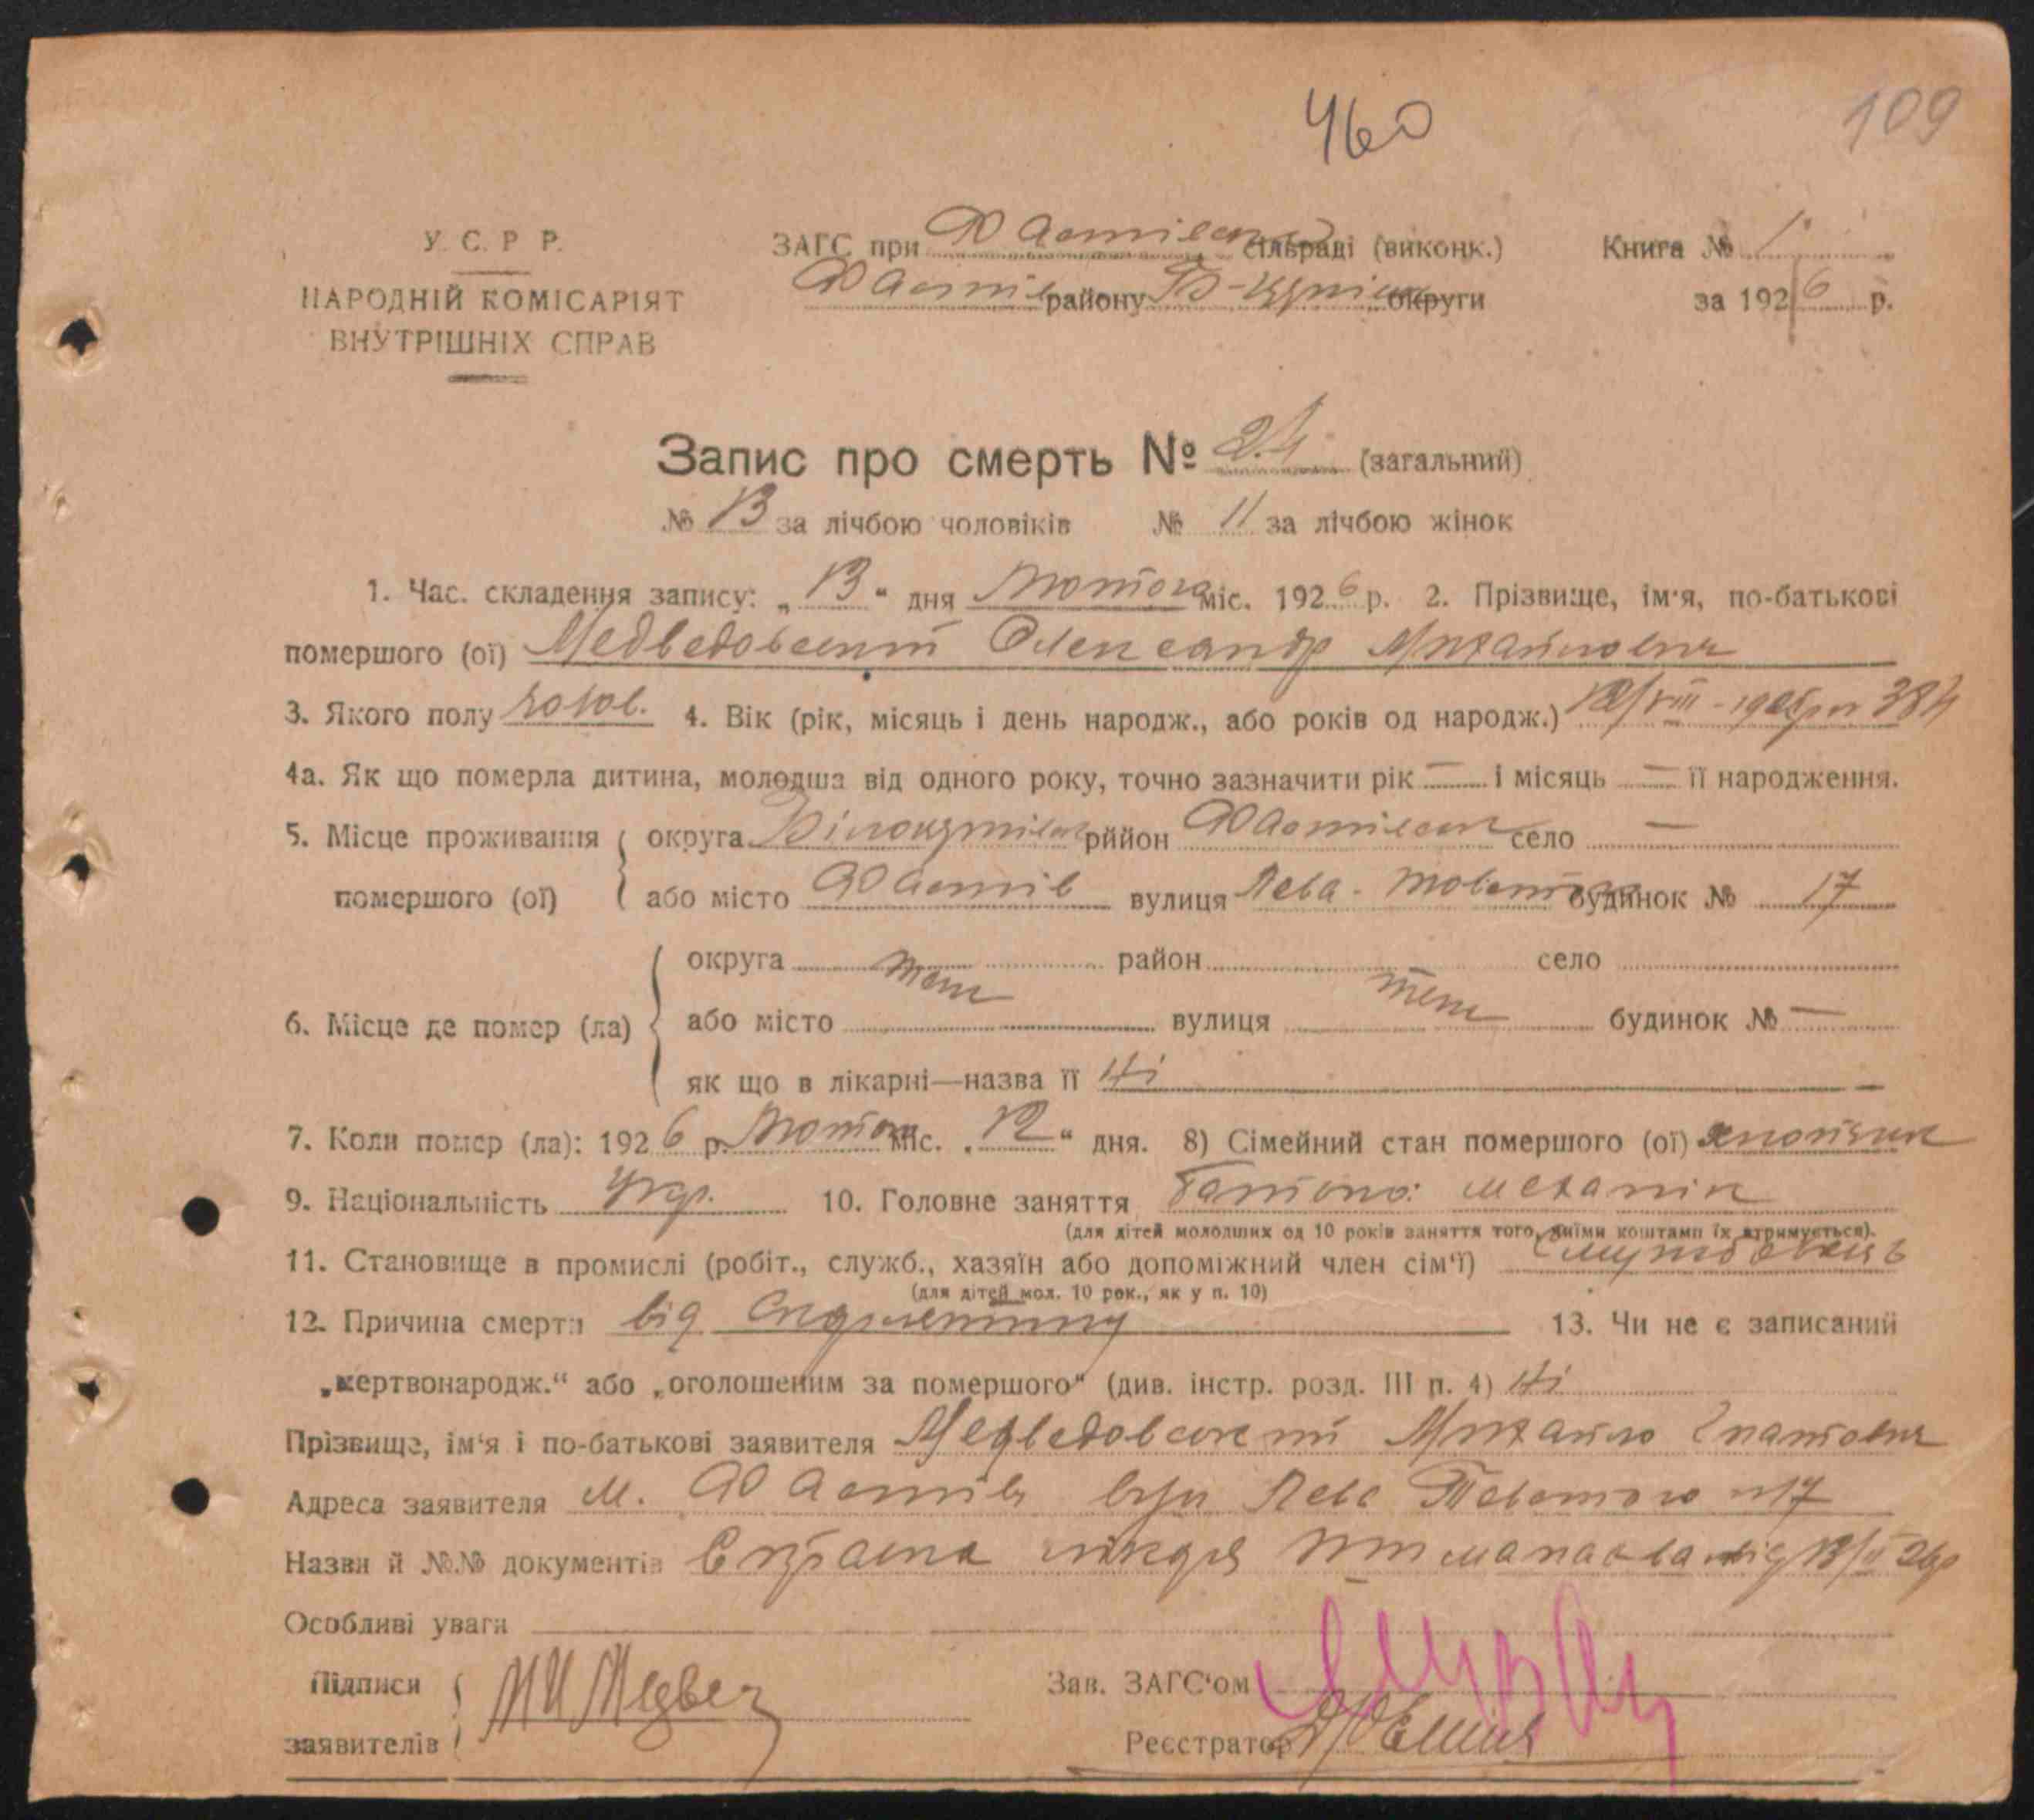 460
109
У. С. Р. Р.
НАРОДНІЙ КОМІСАРІЯТ
ВНУТРІШНІХ СПРАВ
ЗАГС при Фастівській сільраді (виконк.)
Фастів району Б-Церків округи
Книга № 1
за 1926 р.
Запис про смерть № 24 (загальний)
№ 13 за лічбою чоловіків № 11 за лічбою жінок
1. Час. складення запису: „13" дня Лютого міс. 1926 р. 2. Прізвище, ім'я, по-батькові
помершого (ої) Медведовський Олександр Михайлович
3. Якого полу чолов. 4. Вік (рік, місяць і день народж., або років од народж.)
4а. Як що померла дитина, молодша від одного року, точно зазначити рік — і місяць — її народження.
5. Місце проживання округа Білоцерківськ ррйон Фастівськ село —
помершого (ої) або місто Фастів вулиця Лева-Товстого будинок № 17
округа район село
там там
6. Місце де помер (ла) або місто вулиця будинок № —
як що в лікарні—назва її Ні —
7. Коли помер (ла): 1926 р. Лютого міс. „12" дня. 8) Сімейний стан помершого (ої)
9. Національність Укр. 10. Головне заняття механік
(для дітей молодших од 10 років заняття того, якими коштами їх утримується).
11. Становище в промислі (робіт., служб., хазяїн або допоміжний член сім'ї) службовець
(для дітей мол. 10 рок., як у п. 10)
12. Причина смерти від 13. Чи не є записаний
„мертвонародж." або „оголошеним за помершого" (див. інстр. розд. III п. 4) Ні
Прізвище, ім'я і по-батькові заявителя Медведовський Михайло Гнатович
Адреса заявителя м. Фастів вул Лева Товстого №17
Назви й №.№ документів лікаря від 13/II 26р
Особливі уваги
Підписи МИ Медвед
заявителів
Зав. ЗАГС'ом
Реєстратор